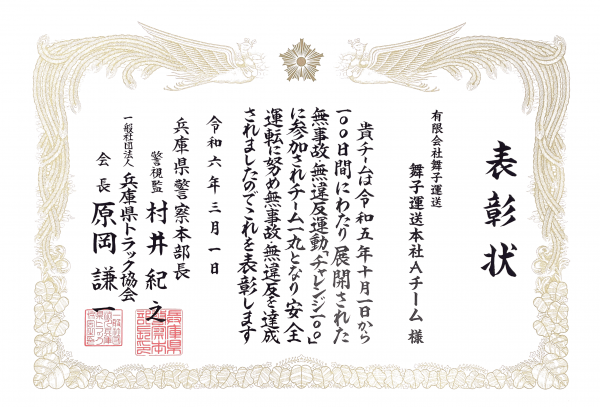 表彰状
有限会社舞子運送
舞子運送本社Aチーム 様
貴チームは令和五年十月一日から
一〇〇日間にわたり展開された
無事故・無違反運動「チャレンジ一〇〇」
に参加されチーム一丸となり安全
運転に努め無事故・無違反を達成
されましたのでこれを表彰します
令和六年三月一日
兵庫県警察本部長
警視監 村井紀之
一般社団法人 兵庫県トラック協会
会長 原岡謙一
兵庫県
警察本
部長印